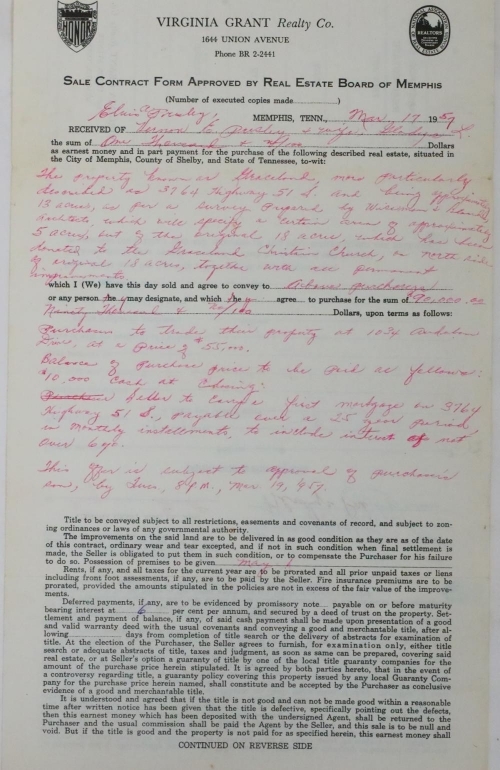 HONOR
VIRGINIA GRANT Realty Co.
1644 UNION AVENUE
Phone BR 2-2441
REALTORS
SALE CONTRACT FORM APPROVED BY REAL ESTATE BOARD OF MEMPHIS
(Number of executed copies made..............)
MEMPHIS, TENN., Mar. 17 1957
RECEIVED OF Vernon E. Presley & wife, Gladys L.
the sum of One Thousand & no/100 Dollars
as earnest money and in part payment for the purchase of the following described real estate, situated in
the City of Memphis, County of Shelby, and State of Tennessee, to-wit:
The property known as Graceland, more particularly
described as 3764 Highway 51 S. and being approximately
13 acres, as per a survey prepared by
Architects, which will specify a certain area of approximately
5 acres, out of the original 18 acres, which has been
donated to the Graceland Christian Church, on north side
of original 18 acres, together with all permanent
improvements
which I (We) have this day sold and agree to convey to above purchasers
or any person the y may designate, and which the y agree to purchase for the sum of 90,000.00
Ninety Thousand & no/100 Dollars, upon terms as follows:
Purchasers to trade their property at 1034 Audubon
Drive, at a price of $55,000.
Balance of purchase price to be paid as follows:
$10,000 cash at closing:
Seller to carry a first mortgage on 3764
Highway 51 S., payable over a 25 year period
in monthly installments, to include interest of not
over 6%.
This offer is subject to approval of purchaser's
son, by Tues, 8 p.m., Mar 19, 957.
Title to be conveyed subject to all restrictions, easements and covenants of record, and subject to zon-
ing ordinances or laws of any governmental authority.
The improvements on the said land are to be delivered in as good condition as they are as of the date
of this contract, ordinary wear and tear excepted, and if not in such condition when final settlement is
made, the Seller is obligated to put them in such condition, or to compensate the Purchaser for his failure
to do so. Possession of premises to be given May 1
Rents, if any, and all taxes for the current year are to be prorated and all prior unpaid taxes or liens
including front foot assessments, if any, are to be paid by the Seller. Fire insurance premiums are to be
prorated, provided the amounts stipulated in the policies are not in excess of the fair value of the improve-
ments.
Deferred payments, if any, are to be evidenced by promissory note.... payable on or before maturity
bearing interest at 6 per cent per annum, and secured by a deed of trust on the property. Set-
tlement and payment of balance, if any, of said cash payment shall be made upon presentation of a good
and valid warranty deed with the usual covenants and conveying a good and merchantable title, after al-
lowing .............. days from completion of title search or the delivery of abstracts for examination of
title. At the election of the Purchaser, the Seller agrees to furnish, for examination only, either title
search or adequate abstracts of title, taxes and judgment, as soon as same can be prepared, covering said
real estate, or at Seller's option a guaranty of title by one of the local title guaranty companies for the
amount of the purchase price herein stipulated. It is agreed by both parties hereto, that in the event of
a controversy regarding title, a guaranty policy covering this property issued by any local Guaranty Com-
pany for the purchase price herein named, shall constitute and be accepted by the Purchaser as conclusive
evidence of a good and merchantable title.
It is understood and agreed that if the title is not good and can not be made good within a reasonable
time after written notice has been given that the title is defective, specifically pointing out the defects,
then this earnest money which has been deposited with the undersigned Agent, shall be returned to the
Purchaser and the usual commission shall be paid the Agent by the Seller, and this sale is to be null and
void. But if the title is good and the property is not paid for as specified herein, this earnest money shall
CONTINUED ON REVERSE SIDE